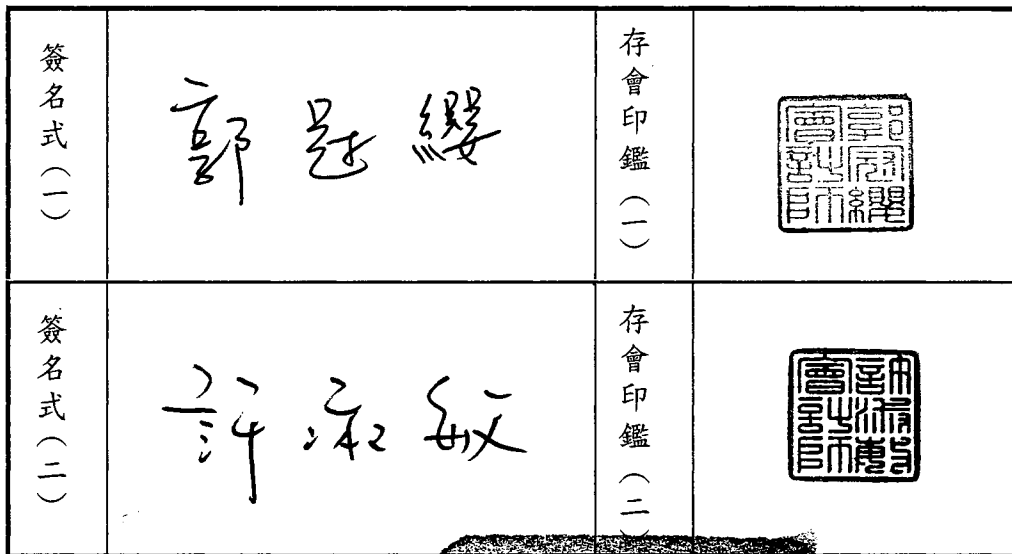 簽名式（一）
郭冠纓
存會印鑑（一）
郭冠纓會計師
簽名式（二）
許淑敏
存會印鑑（二）
許淑敏會計師